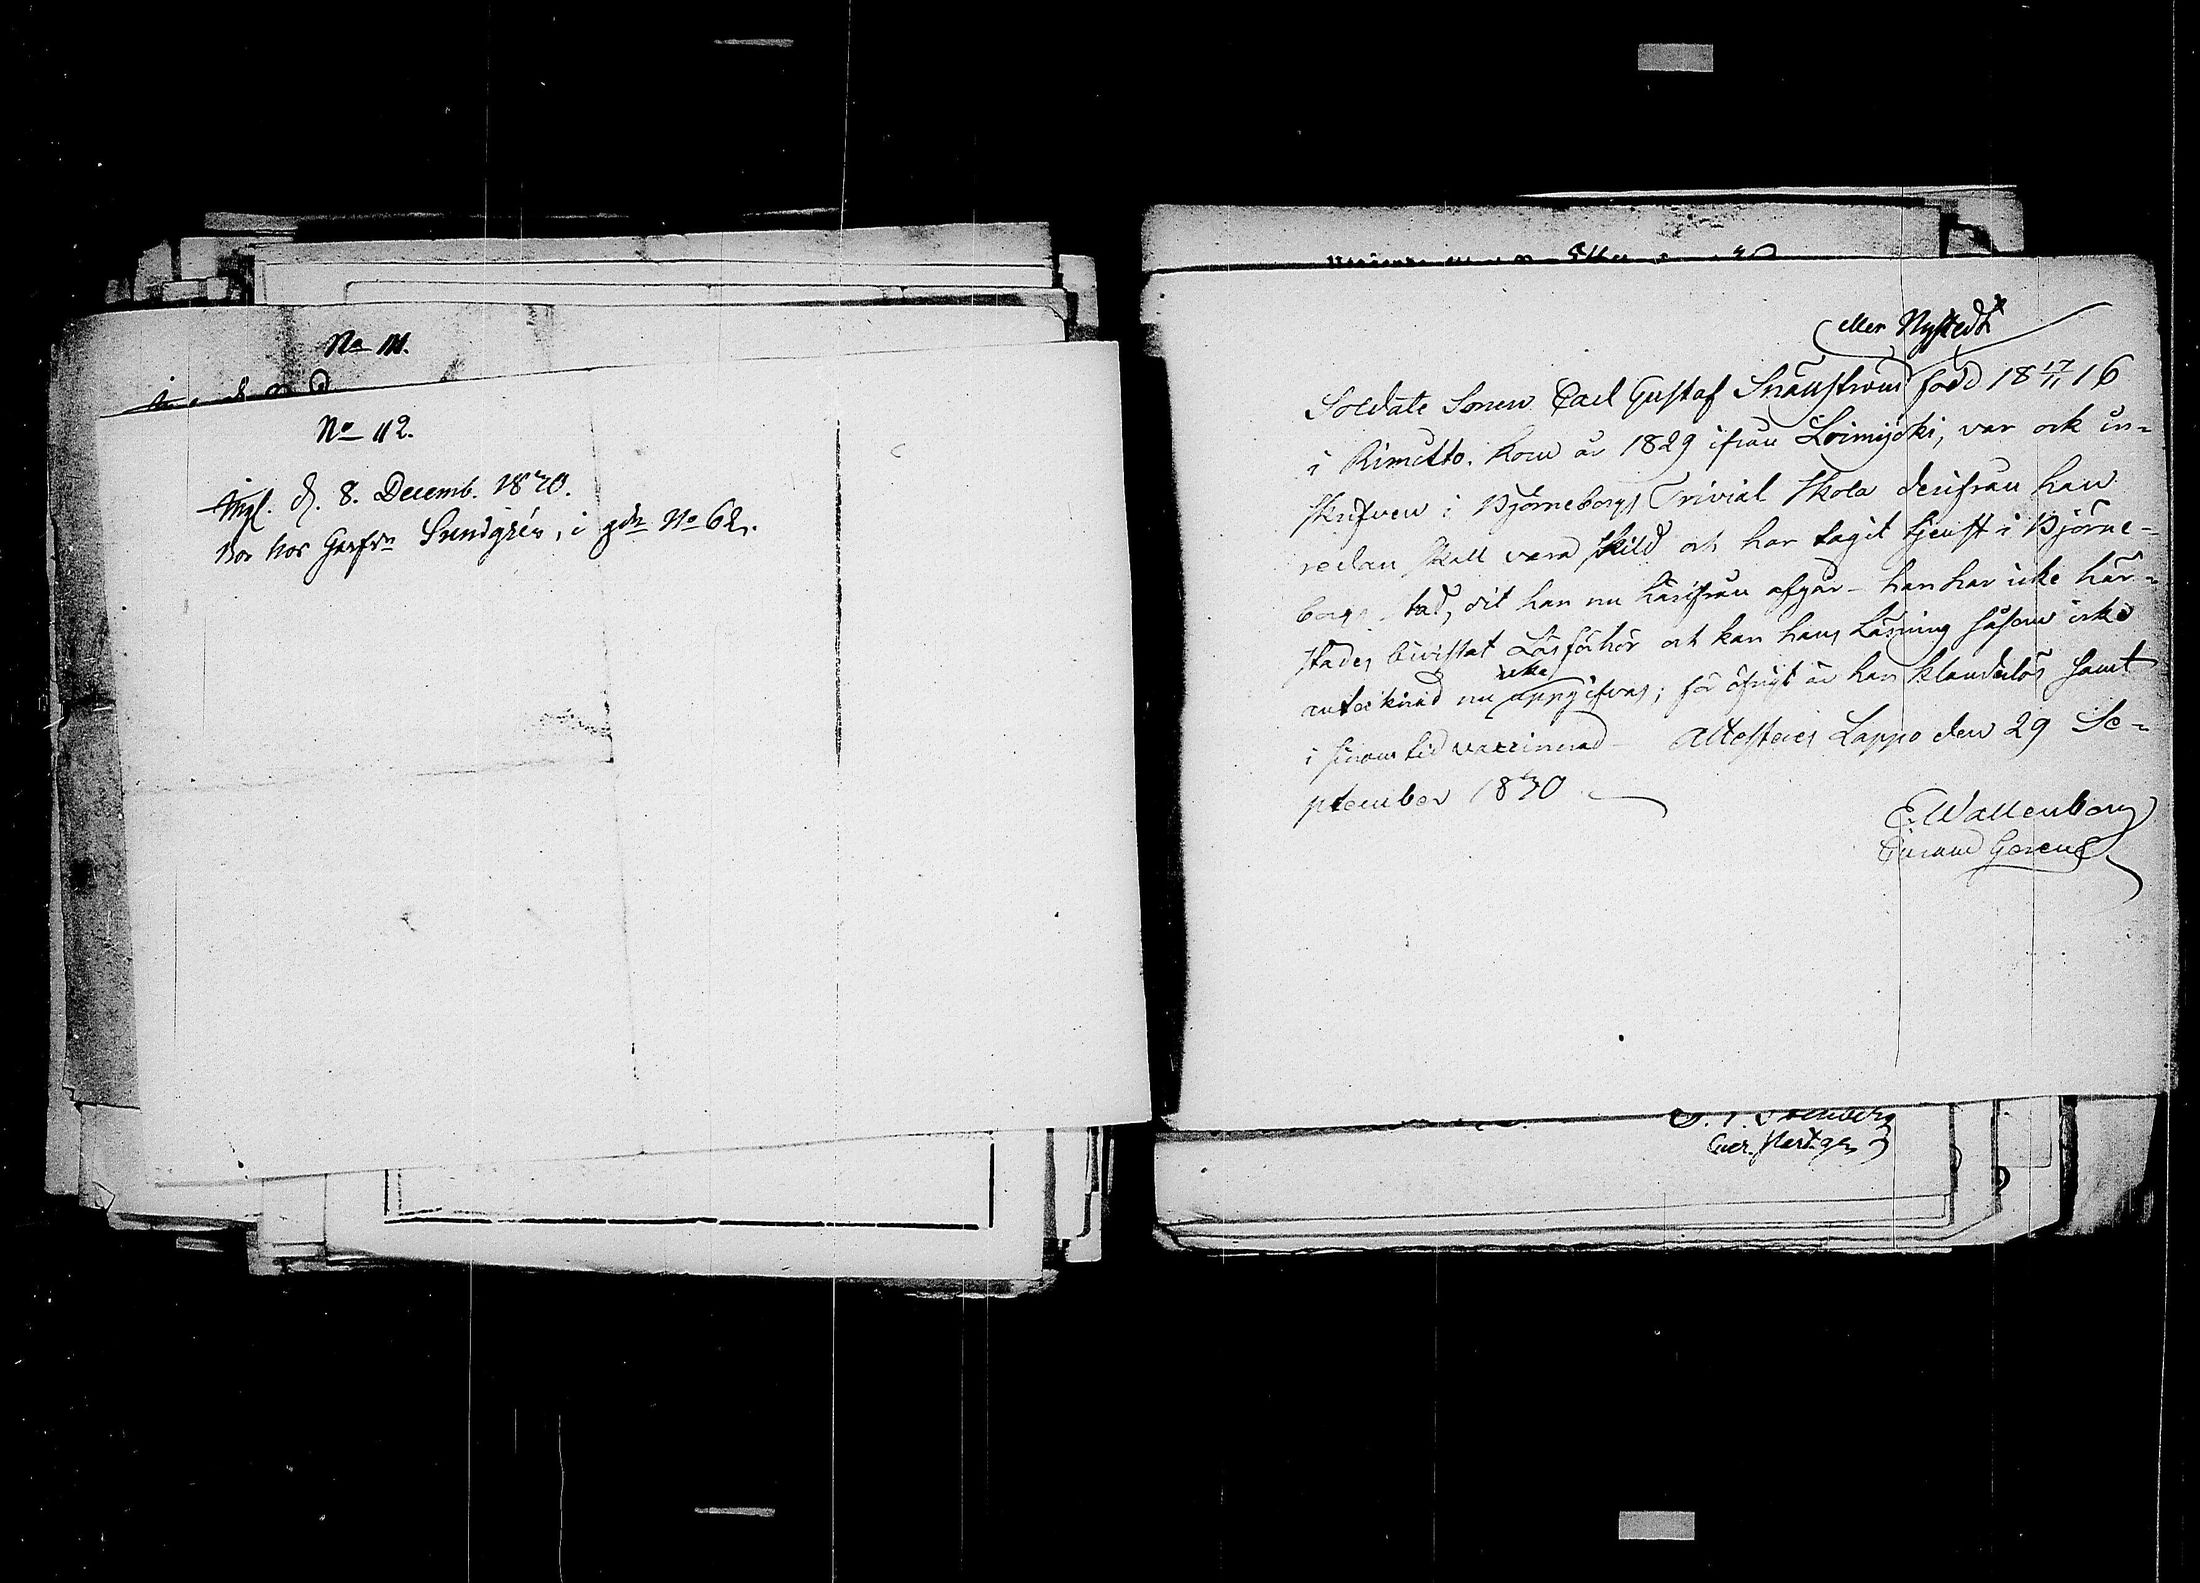 No 111.
No 112.
Ingl. d. 8. Decemb. 1830.
Bor hos Garfvn Sundgrén, i gdn No 62.
eller Nystedt
Soldate Sonen Carl Gustaf Snällström född 18 17/11 16
i Rimitto. kom år 1829 ifrån Loimijoki, var ock in-
skrifven i Björneborgs Trivial Skola derifrån han
redan skall vara skild och har tagit tjenst i Björne-
borgs stad, dit han nu härifrån afgår – han har icke här-
städes bivistat Läsförhör och kan hans Läsning såsom icke
antecknad nu icke uppgifvas; för öfrigt är han klanderlös samt
i sinom tid vaccinerad – Attesteres Lappo den 29 Se-
ptember 1830
E. Wallenborg
Cuer. Hert.gen